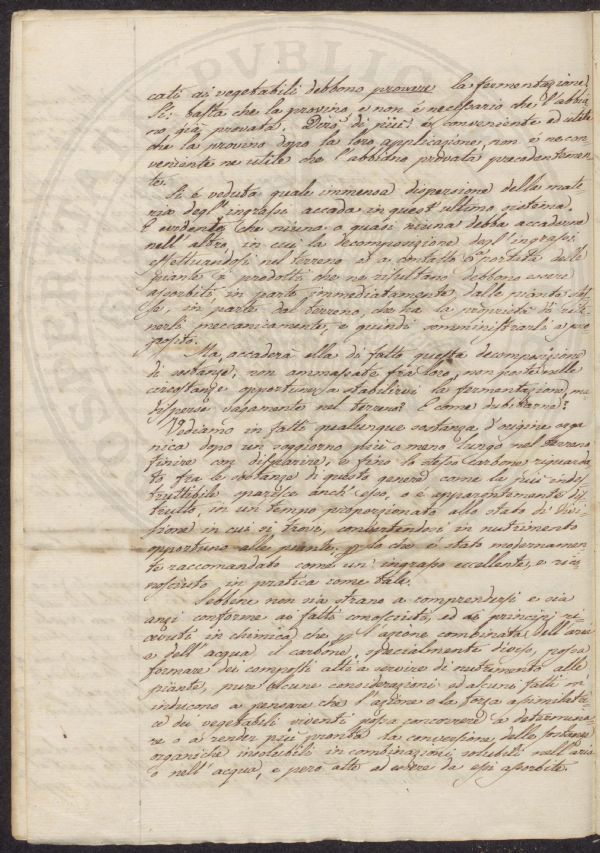 cati ai vegetabili debbono provare la fermentazione?
Sì: basta che la provino, e non è necessario che l'abbia-
no già provata. Dirò di più: è conveniente ed utile
che la provino dopo la loro applicazione, non è ne con-
veniente ne utile che l'abbiano provata precedentemen-
te.
Si è veduta quale immensa dispersione della mate-
ria degl'ingrassi accada in quest'ultimo sistema.
È evidente che niuna o quasi niuna debba accaderne
nell'altro, in cui la decomposizione degl'ingrassi
effettuandosi nel terreno ed a contatto o portata delle
piante i prodotti che ne risultano debbono essere
assorbiti in parte immediatamente dalle piante stes-
se, in parte dal terreno, che ha la proprietà di rite-
nerli meccanicamente, e quindi somministrarli a pro-
posito.
Ma, accaderà ella di fatto questa decomposizione
di sostanze, non ammassate fra loro, non poste nelle
circostanze opportune a stabilirvi la fermentazione, ma
disperse vagamente nel terreno? E come dubitarne?
Vediamo in fatti qualunque sostanza d'origine orga-
nica dopo un soggiorno più o meno lungo nel terreno
finire con disparire, e fino lo stesso carbone riguarda-
to fra le sostanze di questo genere come la più indis-
truttibile sparisce anch'esso, o è apparentemente dis-
trutto, in un tempo proporzionato allo stato di divi-
sione in cui si trova, convertendosi in nutrimento
opportuno alle piante, lo che è stato modernamen-
te raccomandato come un'ingrasso eccellente, e rico-
nosciuto in pratica come tale.
Sebbene non sia strano a comprendersi e sia
anzi conforme ai fatti conosciuti, ed ai principj ri-
cevuti in chimica che l'azione combinata dell'aria
e dell'acqua il carbone, specialmente diviso, possa
formare dei composti atti a servire di nutrimento alle
piante, pure alcune considerazioni ed alcuni fatti m'
inducono a pensare che l'azione o la forza assimilatri-
ce dei vegetabili viventi possa concorrere a determina-
re o a render più pronta la conversione delle sostanze
organiche insolubili in combinazioni solubili nell'aria
o nell'acqua, e però atte ad essere da essi assorbite.